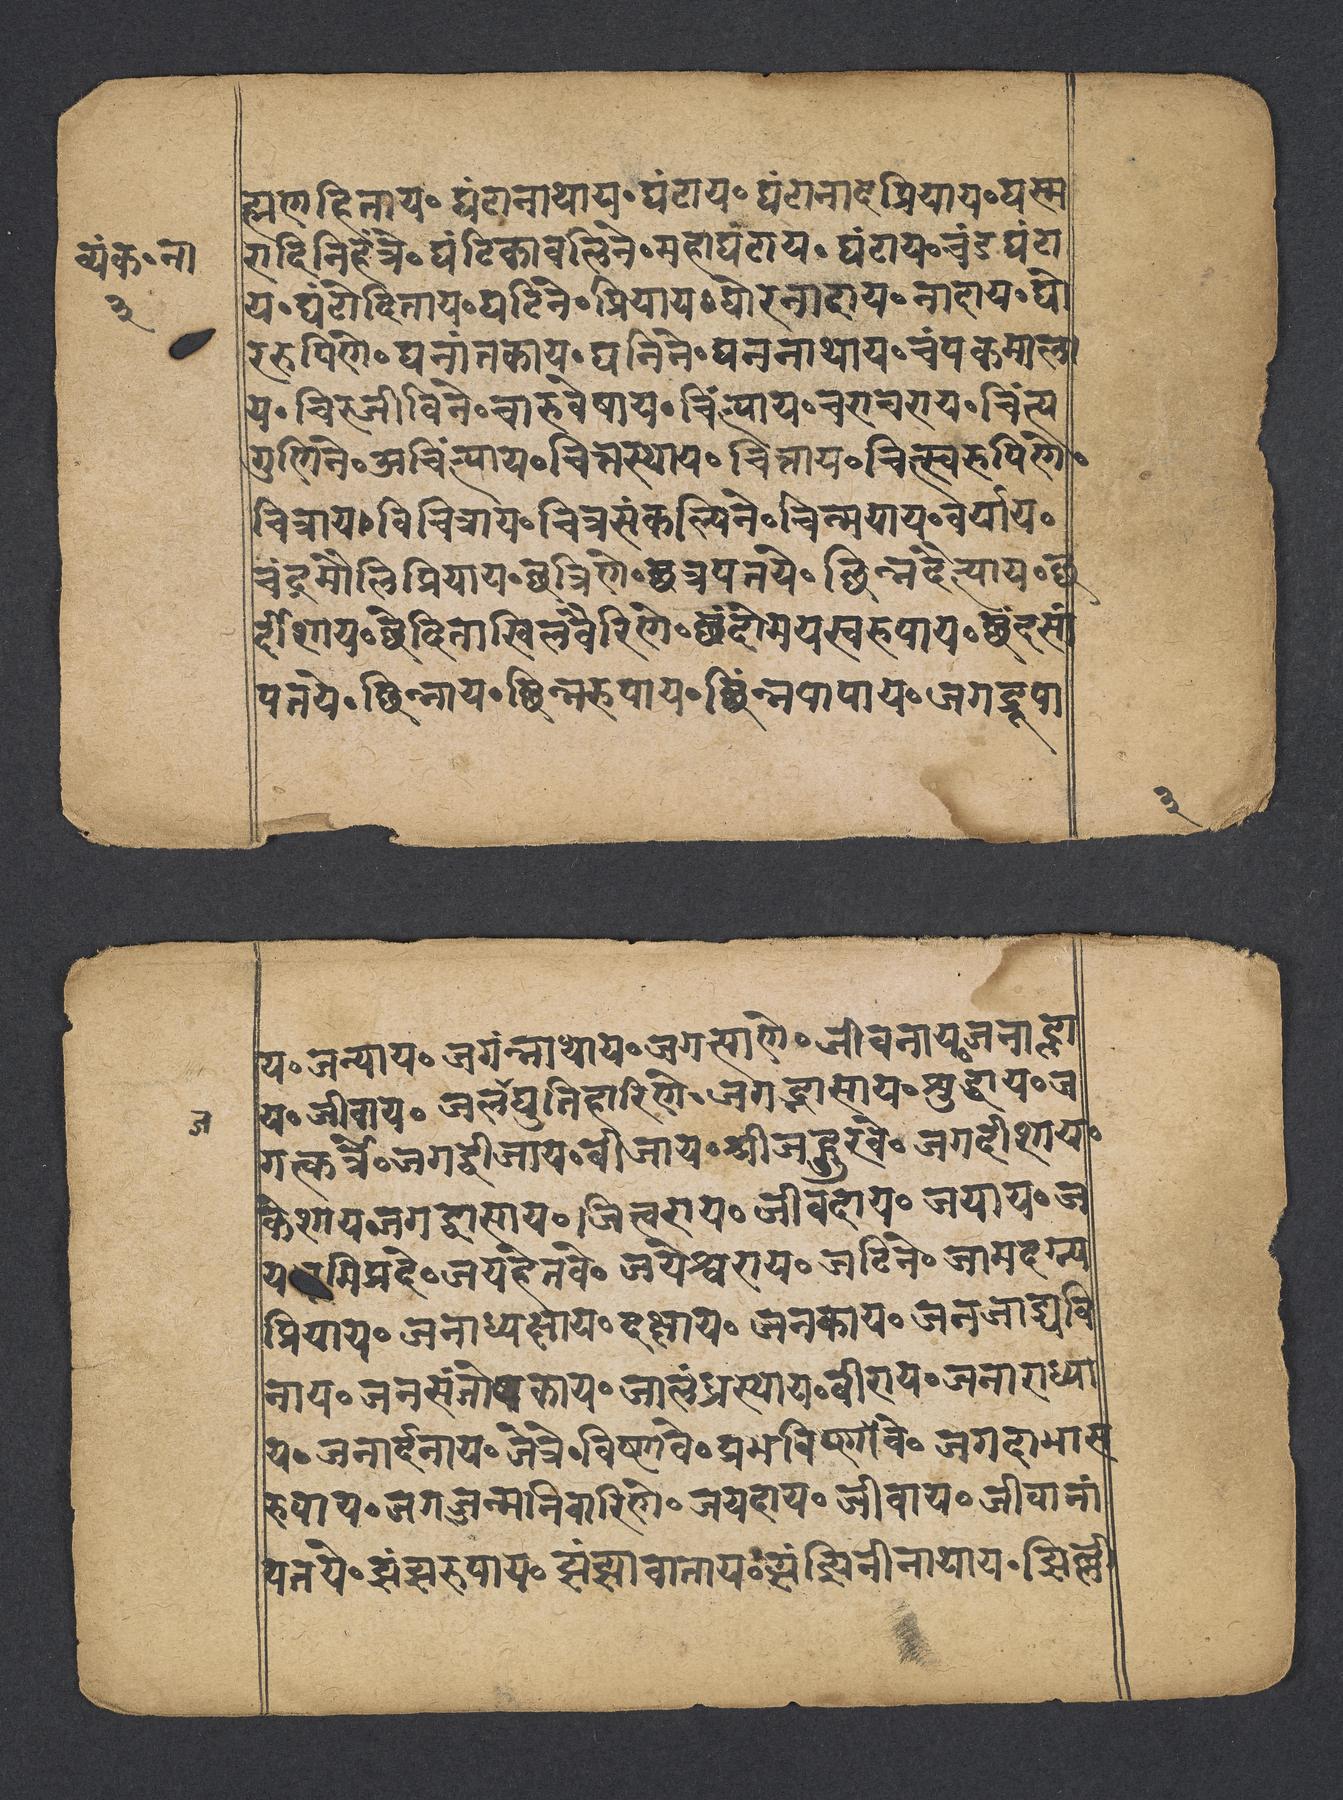 ह्मणहिताय॰ घंटानाथाय॰ घंटाय॰ घंटानादप्रियाय॰ घस्म
रादिनिहंत्रे॰ घंटिकावलिने॰ महाघंटाय॰ घंटाय॰ चंडघंटा
व्यंक॰ना
३
य॰ घंटोदिताय॰ घटिने॰ प्रियाय॰ घोरनादाय॰ नादाय॰ घो
ररुपिणे॰ घनांतकाय॰ घनिने॰ घननाथाय॰ चंपकमाला
य॰ चिरजीविने॰ चारुवेषाय॰ चिंत्याय॰ चराचराय॰ चिंत्य
गुणिने॰ अचिंत्याय॰ चित्तस्थाय॰ चित्ताय॰ चित्स्वरुपिणे॰
चित्राय॰ विचित्राय॰ चित्रसंकल्पिने॰ चिन्मयाय॰ वर्याय॰
चंद्रमौलिप्रियाय॰ छत्रिणे॰ छत्रपतये॰ छिन्नदैत्याय॰ छ
दीशाय॰ छेदिताखिलवैरिणे॰ छंदोमयस्वरुपाय॰ छंदसां
पतये॰ छिन्नाय॰ छिन्नरुपाय॰ छिंन्नपापाय॰ जगद्रूपा
३
य॰ जन्याय॰ जगंन्नाथाय॰ जगत्प्राणे॰ जीवनाय॰ जनाह्ला
य॰ जीवाय॰ जलेघुतिहारिणे॰ जगद्भासाय॰ शुद्धाय॰ ज
ज
गत्कर्त्रे॰ जगद्बीजाय॰ बीजाय॰ श्रीजद्गुरवे॰ जगदीशाय॰
केशाय जगद्वासाय॰ जित्वराय॰ जीवदाय॰ जयाय॰ ज
य मिप्रदे॰ जयहेतवे॰ जयेश्वराय॰ जटिने॰ जामदग्न्य
प्रियाय॰ जनाध्यक्षाय॰ दक्षाय॰ जनकाय॰ जनजाड्यवि
नाय॰ जनसंतोषकाय॰ जालंध्रस्थाय॰ वीराय॰ जनाराध्या
य॰ जनार्दनाय॰ जेत्रे॰ विष्णवे॰ प्रभविष्णवे॰ जगदाभास
रुपाय॰ जगज्जन्मनिवारिणे॰ जयदाय॰ जीवाय॰ जीवानां
पतये॰ झंझरुपाय॰ झंझावाताय॰ झंझिनीनाथाय॰ झिल्ली